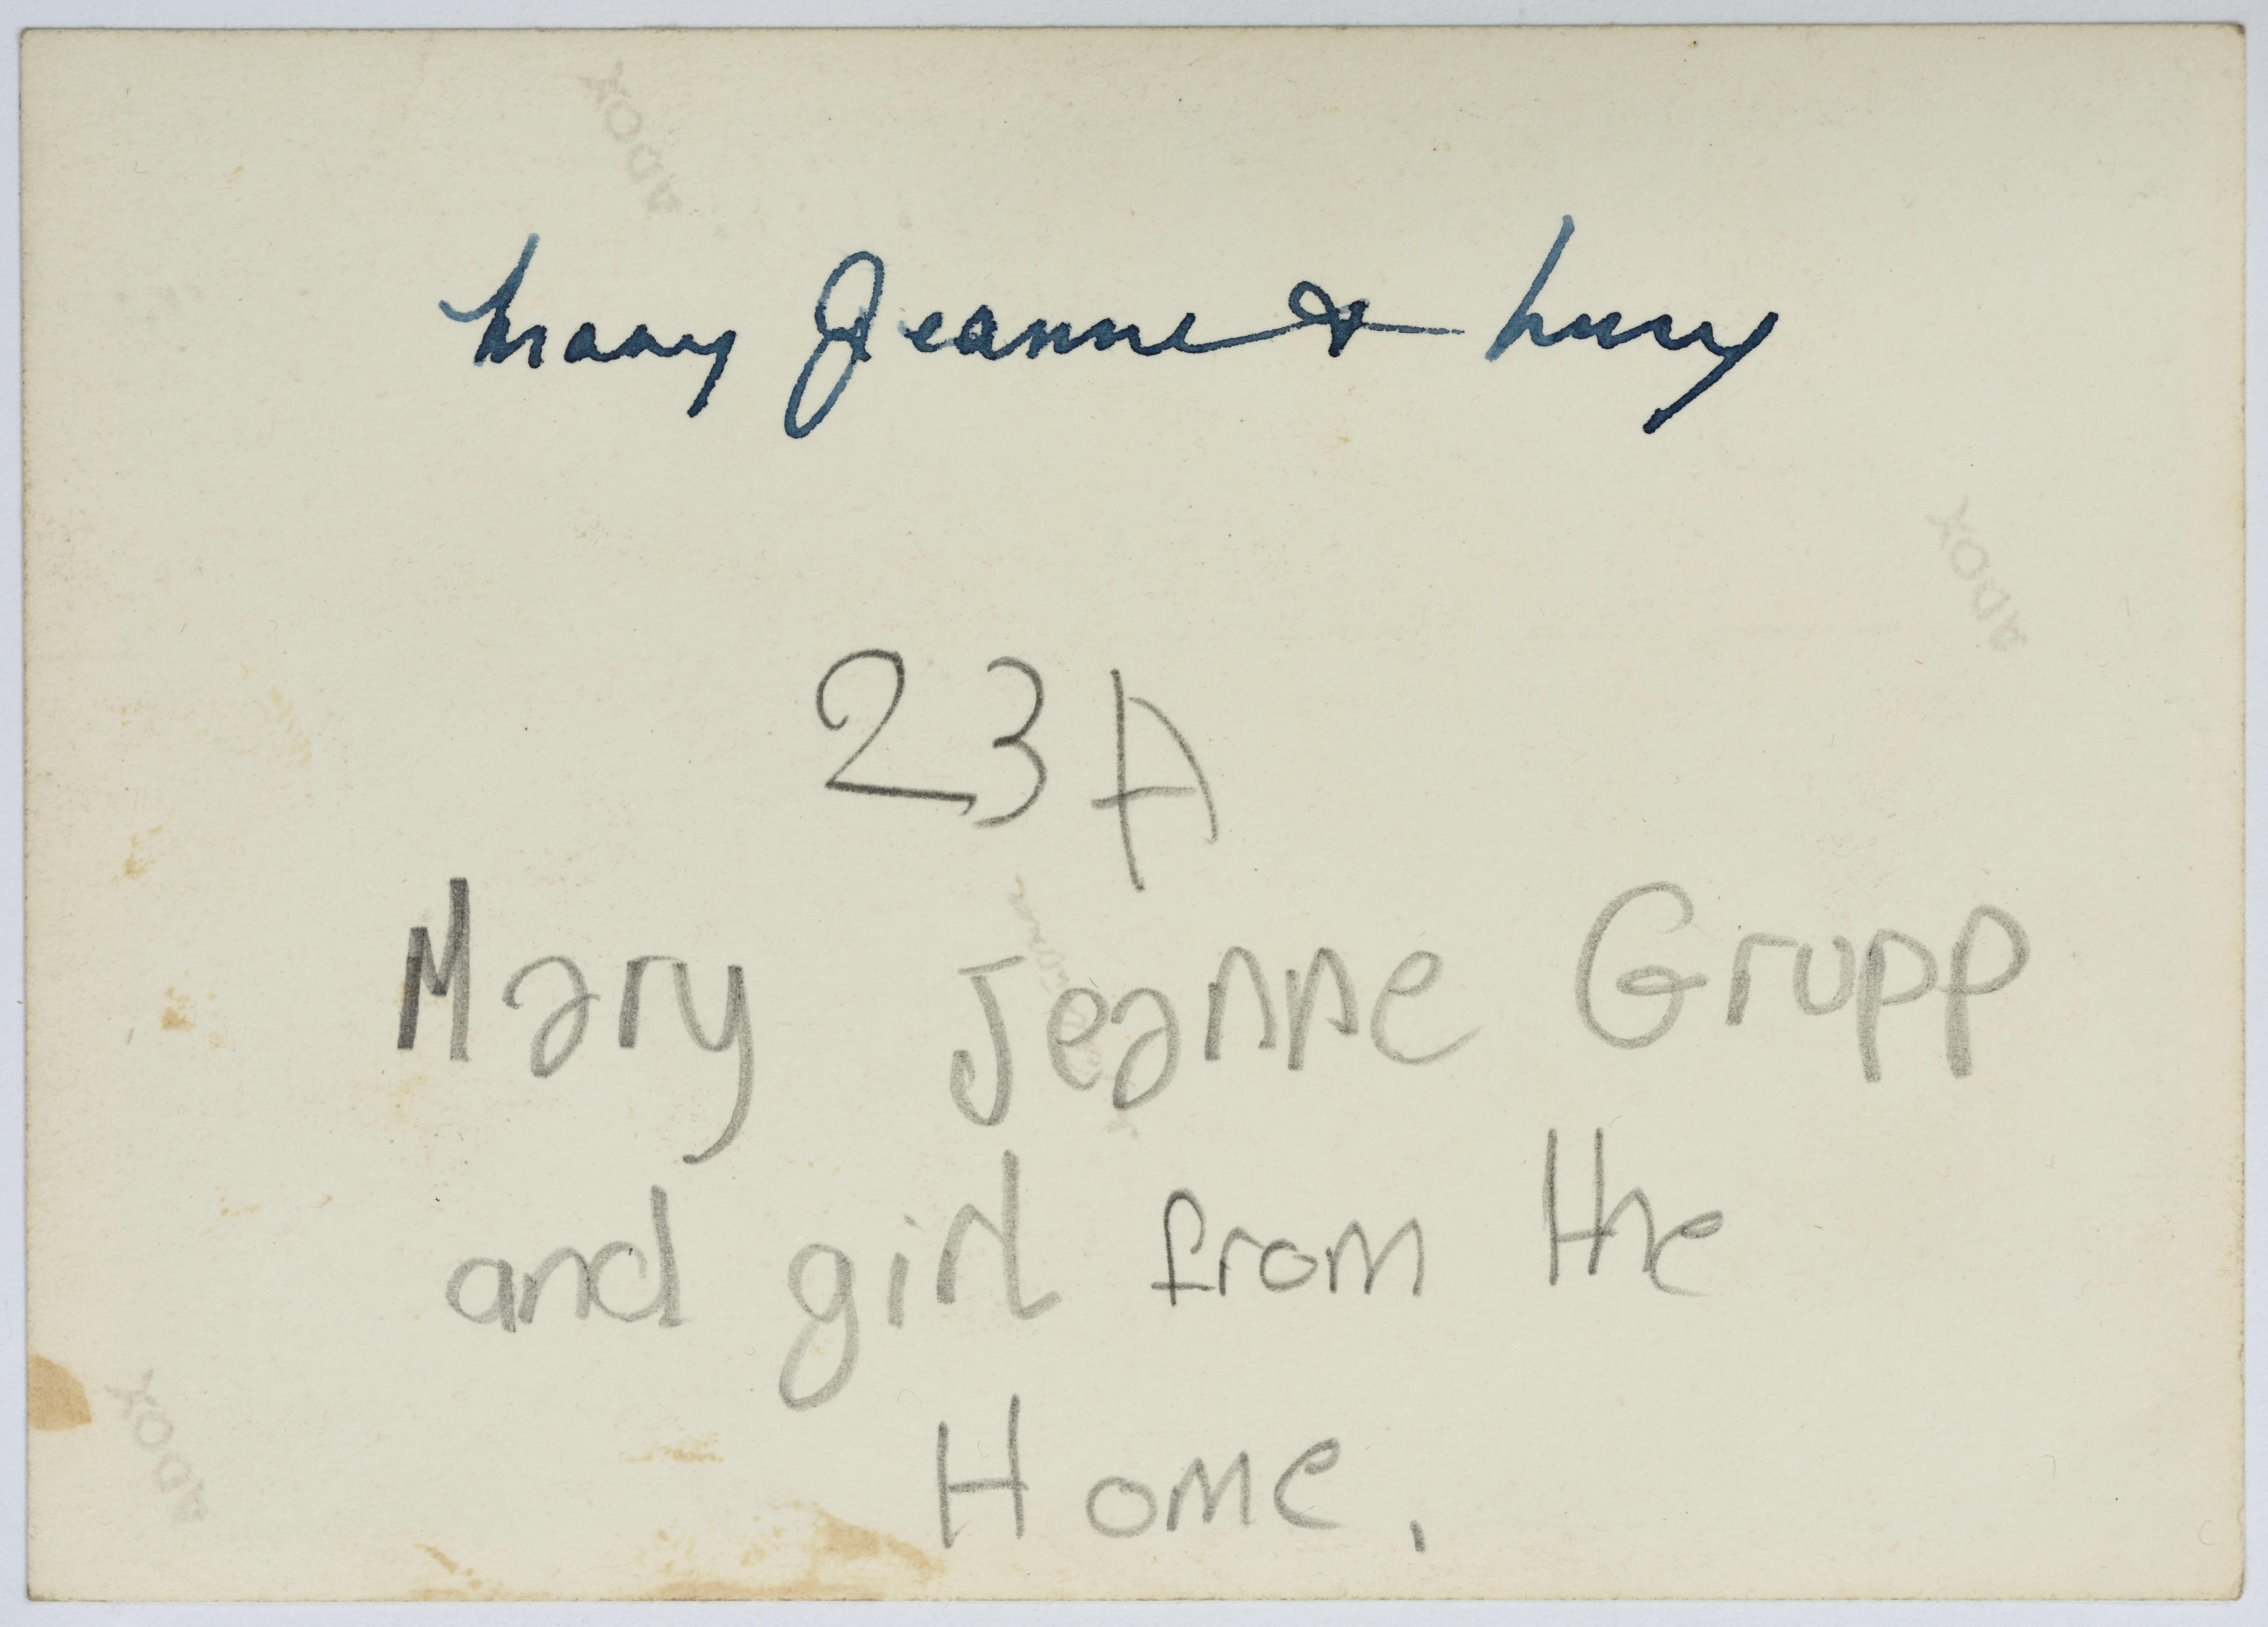 Mary Jeanne & Lucy
23A
Mary Jeanne Grupp
and girl from the
Home.
ADOX
ADOX
ADOX